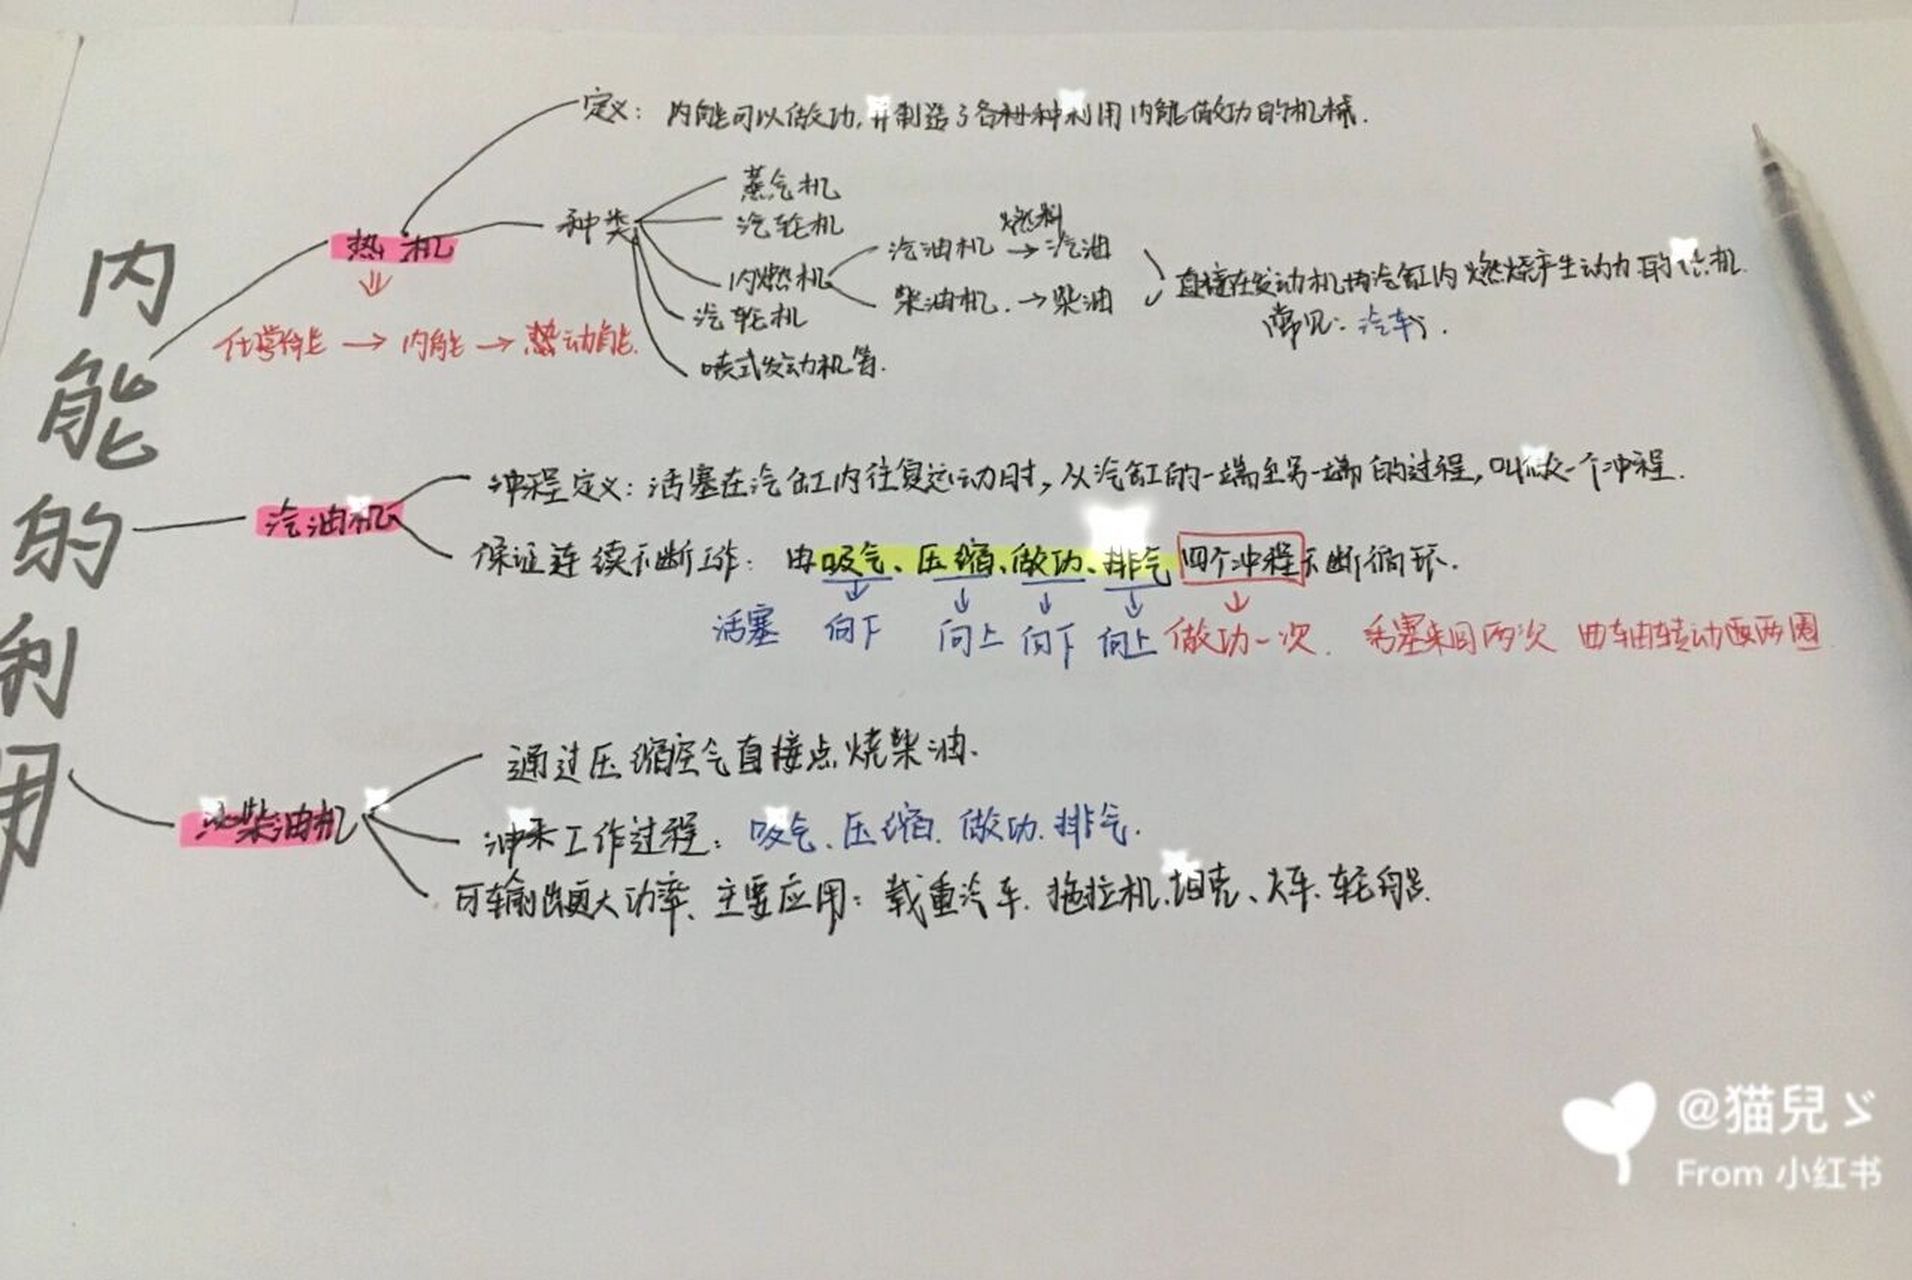 内能的利用
热机
定义：内能可以做功，并制造了各种利用内能做功的机械．
种类
蒸气机
汽轮机
内燃机
汽油机 →燃料 汽油
柴油机．→柴油
直接在发动机内汽缸内燃烧产生动力的热机
常见：汽车．
汽轮机
喷式发动机等．
→ 内能 → 动能
汽油机
冲程定义：活塞在汽缸内往复运动时，从汽缸的一端至另一端的过程，叫做一个冲程．
保证连续不断工作：由吸气、压缩、做功、排气四个冲程不断循环．
活塞 向下 向上 向下 向上 做功一次．活塞来回两次 曲轴转动两圈
柴油机
通过压缩空气直接点烧柴油．
工作过程：吸气、压缩．做功．排气．
可输出更大功率、主要应用：载重汽车．拖拉机．坦克、火车．轮船．
@猫兒ゞ
From 小红书